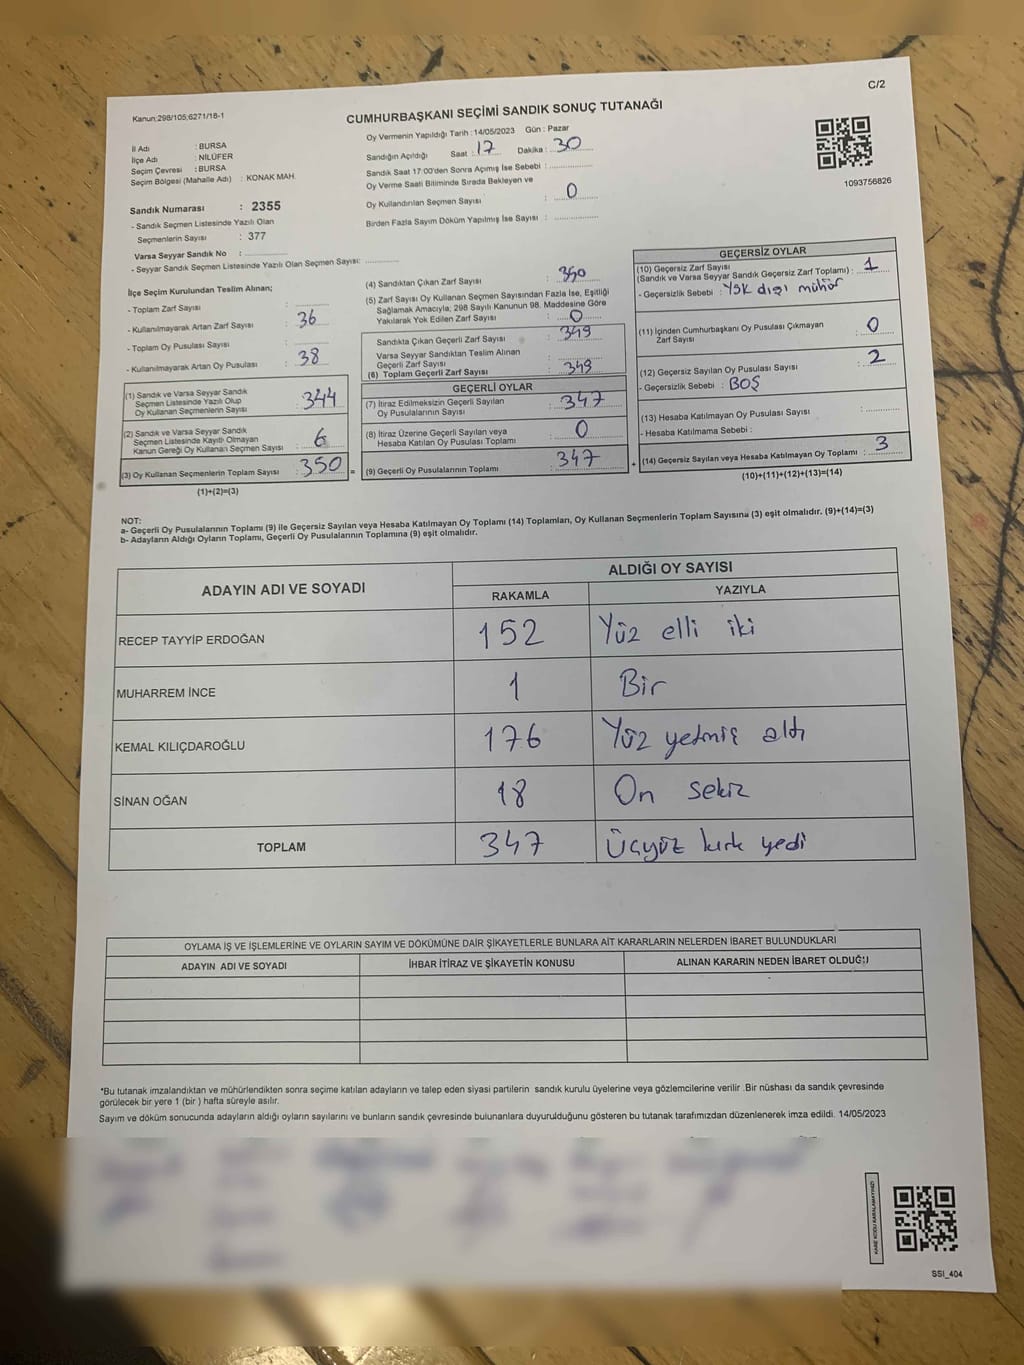 C/2
Kanun;298/105;6271/18-1
CUMHURBAŞKANI SEÇİMİ SANDIK SONUÇ TUTANAĞI
İl Adı : BURSA
İlçe Adı : NİLÜFER
Seçim Çevresi : BURSA
Seçim Bölgesi (Mahalle Adı) : KONAK MAH.
Oy Vermenin Yapıldığı Tarih : 14/05/2023 Gün : Pazar
Sandığın Açıldığı Saat : 17 Dakika : 30
Sandık Saat 17:00'den Sonra Açımış İse Sebebi :
Oy Verme Saati Bitiminde Sırada Bekleyen ve
Oy Kullandırılan Seçmen Sayısı : 0
Birden Fazla Sayım Döküm Yapılmış İse Sayısı :
1093756826
Sandık Numarası : 2355
- Sandık Seçmen Listesinde Yazılı Olan
Seçmenlerin Sayısı : 377
Varsa Seyyar Sandık No :
- Seyyar Sandık Seçmen Listesinde Yazılı Olan Seçmen Sayısı:
İlçe Seçim Kurulundan Teslim Alınan;
- Toplam Zarf Sayısı :
- Kullanılmayarak Artan Zarf Sayısı : 36
- Toplam Oy Pusulası Sayısı :
- Kullanılmayarak Artan Oy Pusulası : 38
(1) Sandık ve Varsa Seyyar Sandık
Seçmen Listesinde Yazılı Olup
Oy Kullanan Seçmenlerin Sayısı : 344
(2) Sandık ve Varsa Seyyar Sandık
Seçmen Listesinde Kayıtlı Olmayan
Kanun Gereği Oy Kullanan Seçmen Sayısı : 6
(3) Oy Kullanan Seçmenlerin Toplam Sayısı : 350 =
(1)+(2)=(3)
(4) Sandıktan Çıkan Zarf Sayısı : 350
(5) Zarf Sayısı Oy Kullanan Seçmen Sayısından Fazla İse, Eşitliği
Sağlamak Amacıyla, 298 Sayılı Kanunun 98. Maddesine Göre
Yakılarak Yok Edilen Zarf Sayısı : 0
Sandıkta Çıkan Geçerli Zarf Sayısı : 349
Varsa Seyyar Sandıktan Teslim Alınan
Geçerli Zarf Sayısı :
(6) Toplam Geçerli Zarf Sayısı : 349
GEÇERLİ OYLAR
(7) İtiraz Edilmeksizin Geçerli Sayılan
Oy Pusulalarının Sayısı : 347
(8) İtiraz Üzerine Geçerli Sayılan veya
Hesaba Katılan Oy Pusulası Toplamı : 0
(9) Geçerli Oy Pusulalarının Toplamı : 347 +
GEÇERSİZ OYLAR
(10) Geçersiz Zarf Sayısı
(Sandık ve Varsa Seyyar Sandık Geçersiz Zarf Toplamı) : 1
- Geçersizlik Sebebi : YSK dışı mühür
(11) İçinden Cumhurbaşkanı Oy Pusulası Çıkmayan
Zarf Sayısı : 0
(12) Geçersiz Sayılan Oy Pusulası Sayısı : 2
- Geçersizlik Sebebi : BOŞ
(13) Hesaba Katılmayan Oy Pusulası Sayısı :
- Hesaba Katılmama Sebebi :
(14) Geçersiz Sayılan veya Hesaba Katılmayan Oy Toplamı : 3
(10)+(11)+(12)+(13)=(14)
NOT:
a- Geçerli Oy Pusulalarının Toplamı (9) ile Geçersiz Sayılan veya Hesaba Katılmayan Oy Toplamı (14) Toplamları, Oy Kullanan Seçmenlerin Toplam Sayısına (3) eşit olmalıdır. (9)+(14)=(3)
b- Adayların Aldığı Oyların Toplamı, Geçerli Oy Pusulalarının Toplamına (9) eşit olmalıdır.
ADAYIN ADI VE SOYADI ALDIĞI OY SAYISI
RAKAMLA YAZIYLA
RECEP TAYYİP ERDOĞAN 152 Yüz elli iki
MUHARREM İNCE 1 Bir
KEMAL KILIÇDAROĞLU 176 Yüz yetmiş altı
SİNAN OĞAN 18 On sekiz
TOPLAM 347 Üçyüz kırk yedi
OYLAMA İŞ VE İŞLEMLERİNE VE OYLARIN SAYIM VE DÖKÜMÜNE DAİR ŞİKAYETLERLE BUNLARA AİT KARARLARIN NELERDEN İBARET BULUNDUKLARI
ADAYIN ADI VE SOYADI İHBAR İTİRAZ VE ŞİKAYETİN KONUSU ALINAN KARARIN NEDEN İBARET OLDUĞU
*Bu tutanak imzalandıktan ve mühürlendikten sonra seçime katılan adayların ve talep eden siyasi partilerin sandık kurulu üyelerine veya gözlemcilerine verilir .Bir nüshası da sandık çevresinde
görülecek bir yere 1 (bir ) hafta süreyle asılır.
Sayım ve döküm sonucunda adayların aldığı oyların sayılarını ve bunların sandık çevresinde bulunanlara duyurulduğunu gösteren bu tutanak tarafımızdan düzenlenerek imza edildi. 14/05/2023
KARE KODU KARALAMAYINIZ!
SSI_404